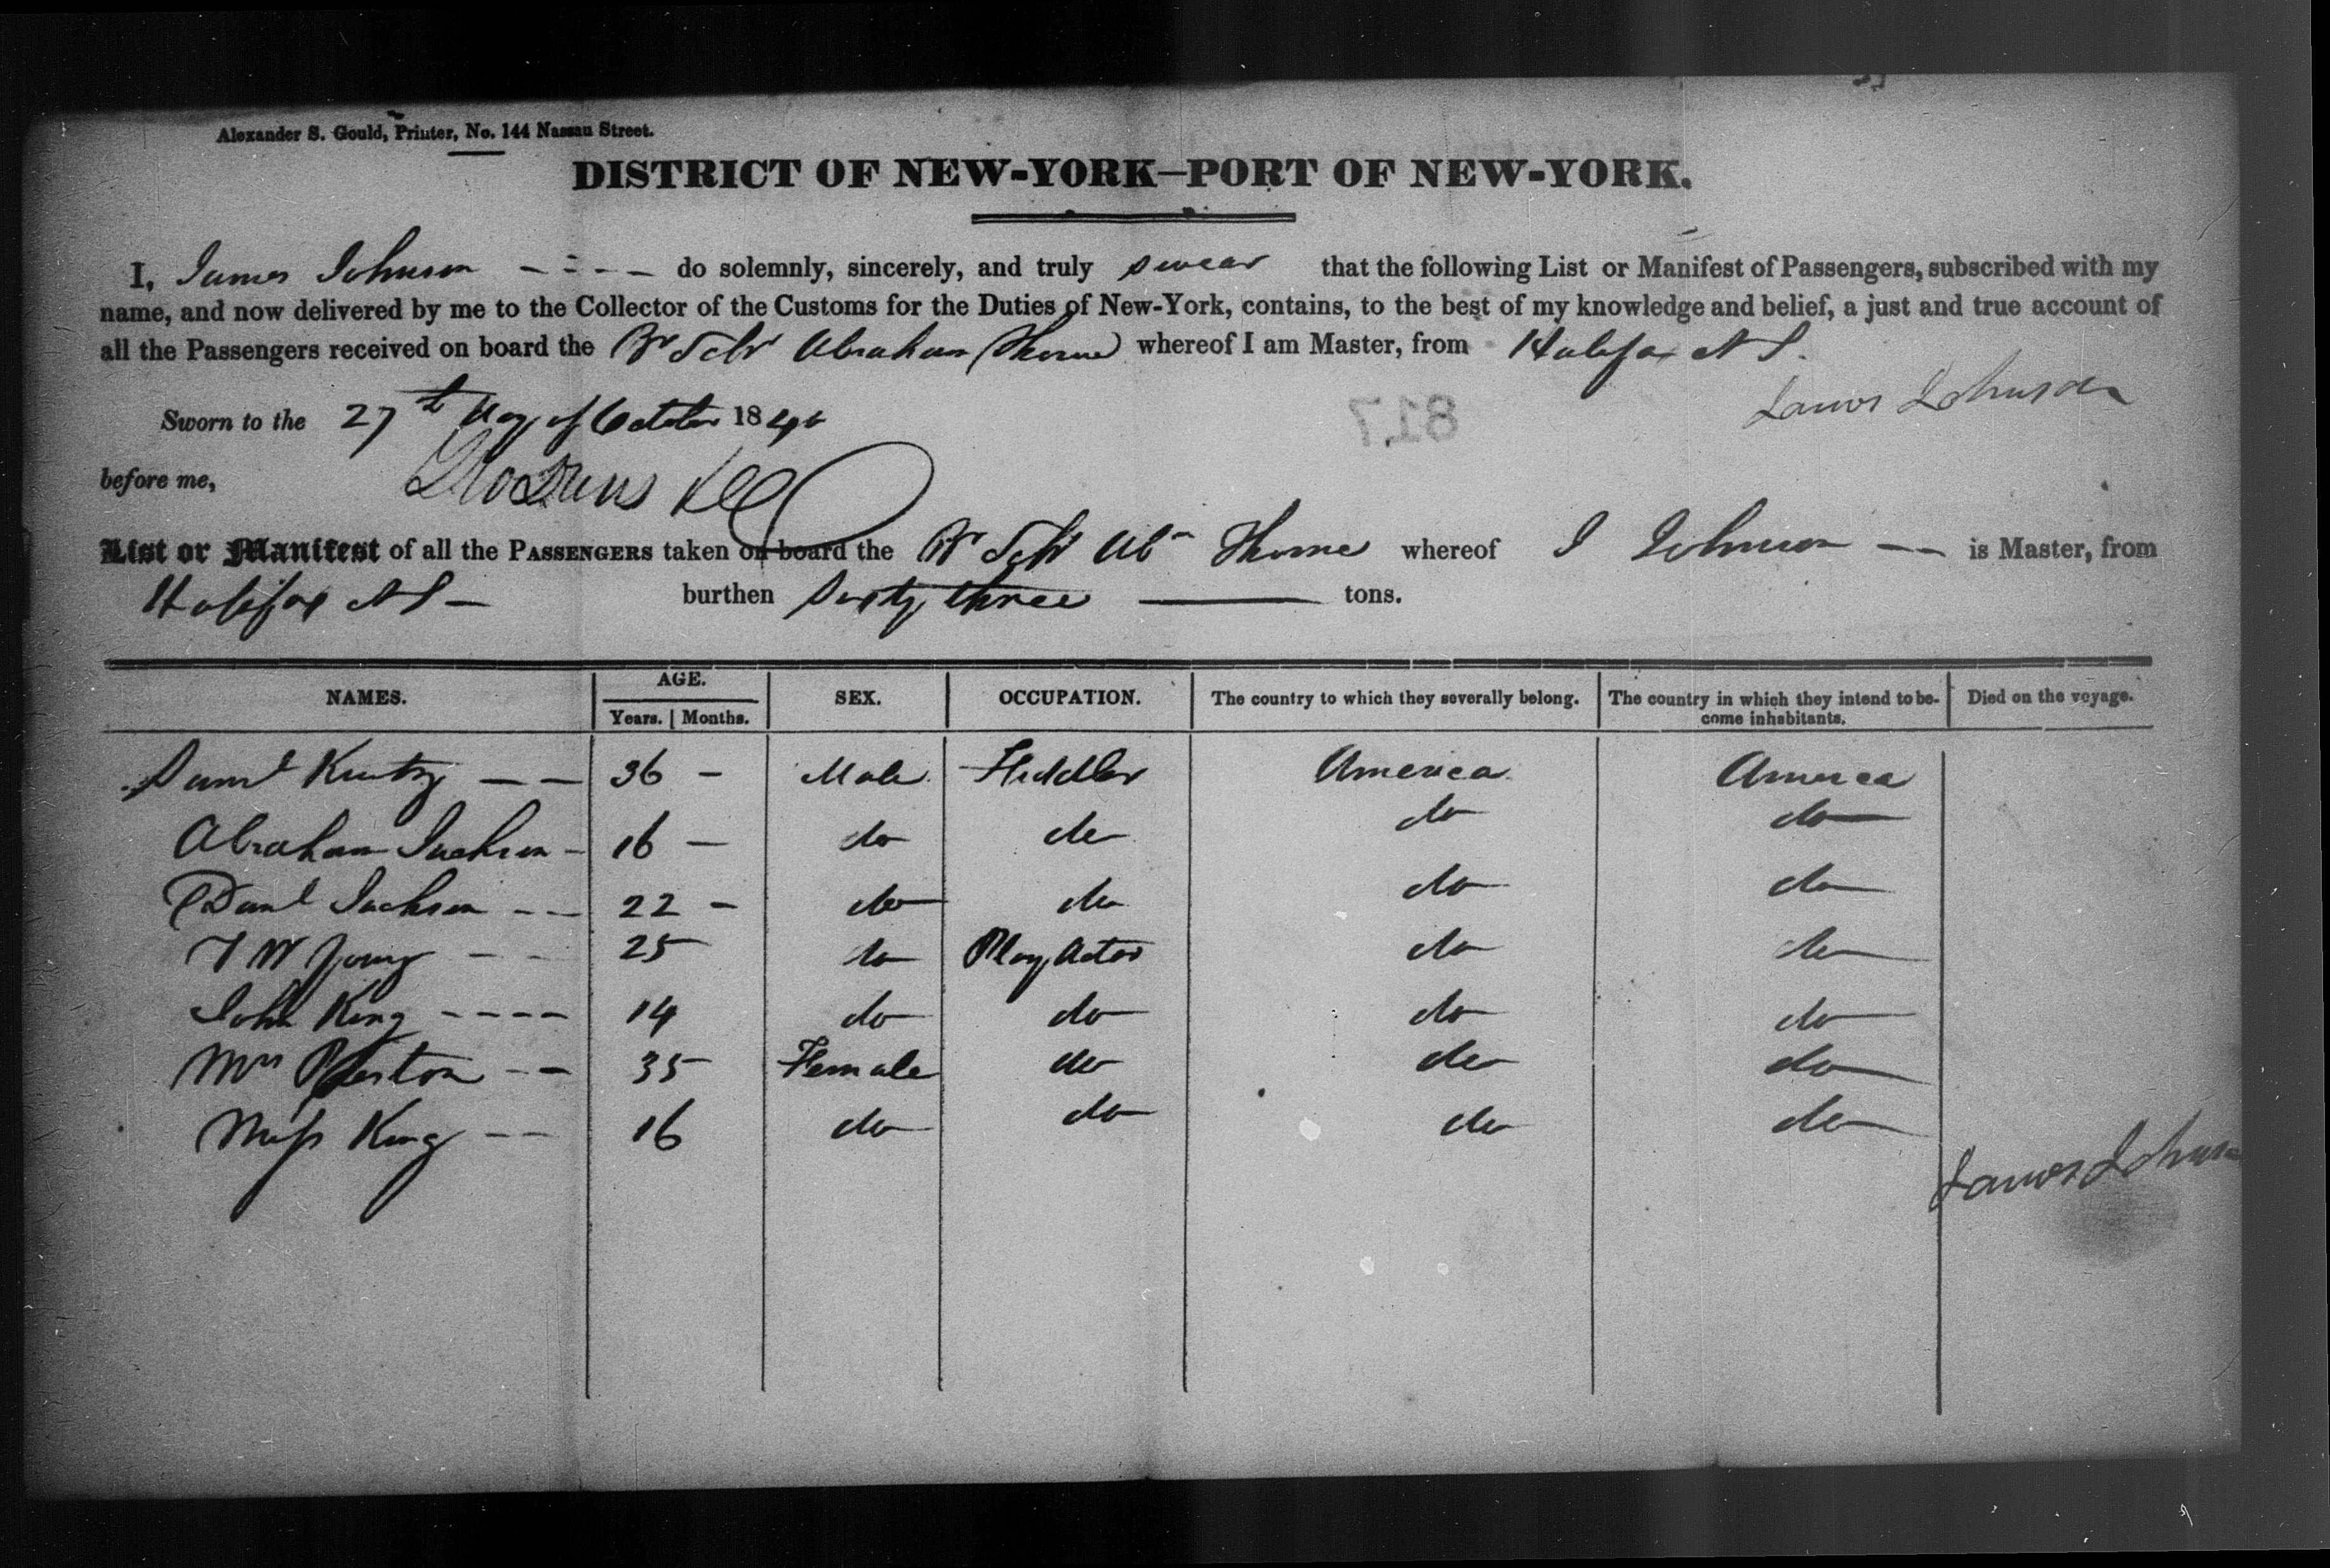 Alexander S. Gould, Printer, No. 144 Nassau Street.
DISTRICT OF NEW-YORK—PORT OF NEW-YORK.
I, James Johnson do solemnly, sincerely, and truly swear that the following List or Manifest of Passengers, subscribed with my
name, and now delivered by me to the Collector of the Customs for the Duties of New-York, contains, to the best of my knowledge and belief, a just and true account of
all the Passengers received on board the Br Schr Abraham Thorne whereof I am Master, from Halifax N S.
James Johnson
Sworn to the 27th day of October 184
817
before me,
List or Manifest of all the PASSENGERS taken on board the Br Schr Abm Thorne whereof J Johnson — is Master, from
Halifax N S — burthen Sixty three — tons.
NAMES. AGE. SEX. OCCUPATION. The country to which they severally belong. The country in which they intend to be- Died on the voyage.
Years. Months. come inhabitants.
Saml — — 36 - Male Fiddler America America
Abraham Jackson - 16 — do do do do
Danl Jackson - - 22 - do do do do
J W Young - - 25 do Play Actor do do
John King - - - - 14 do do do do
Mrs Preston - - 35 Female do do do
Miss King - - 16 do do do do
James Johnson